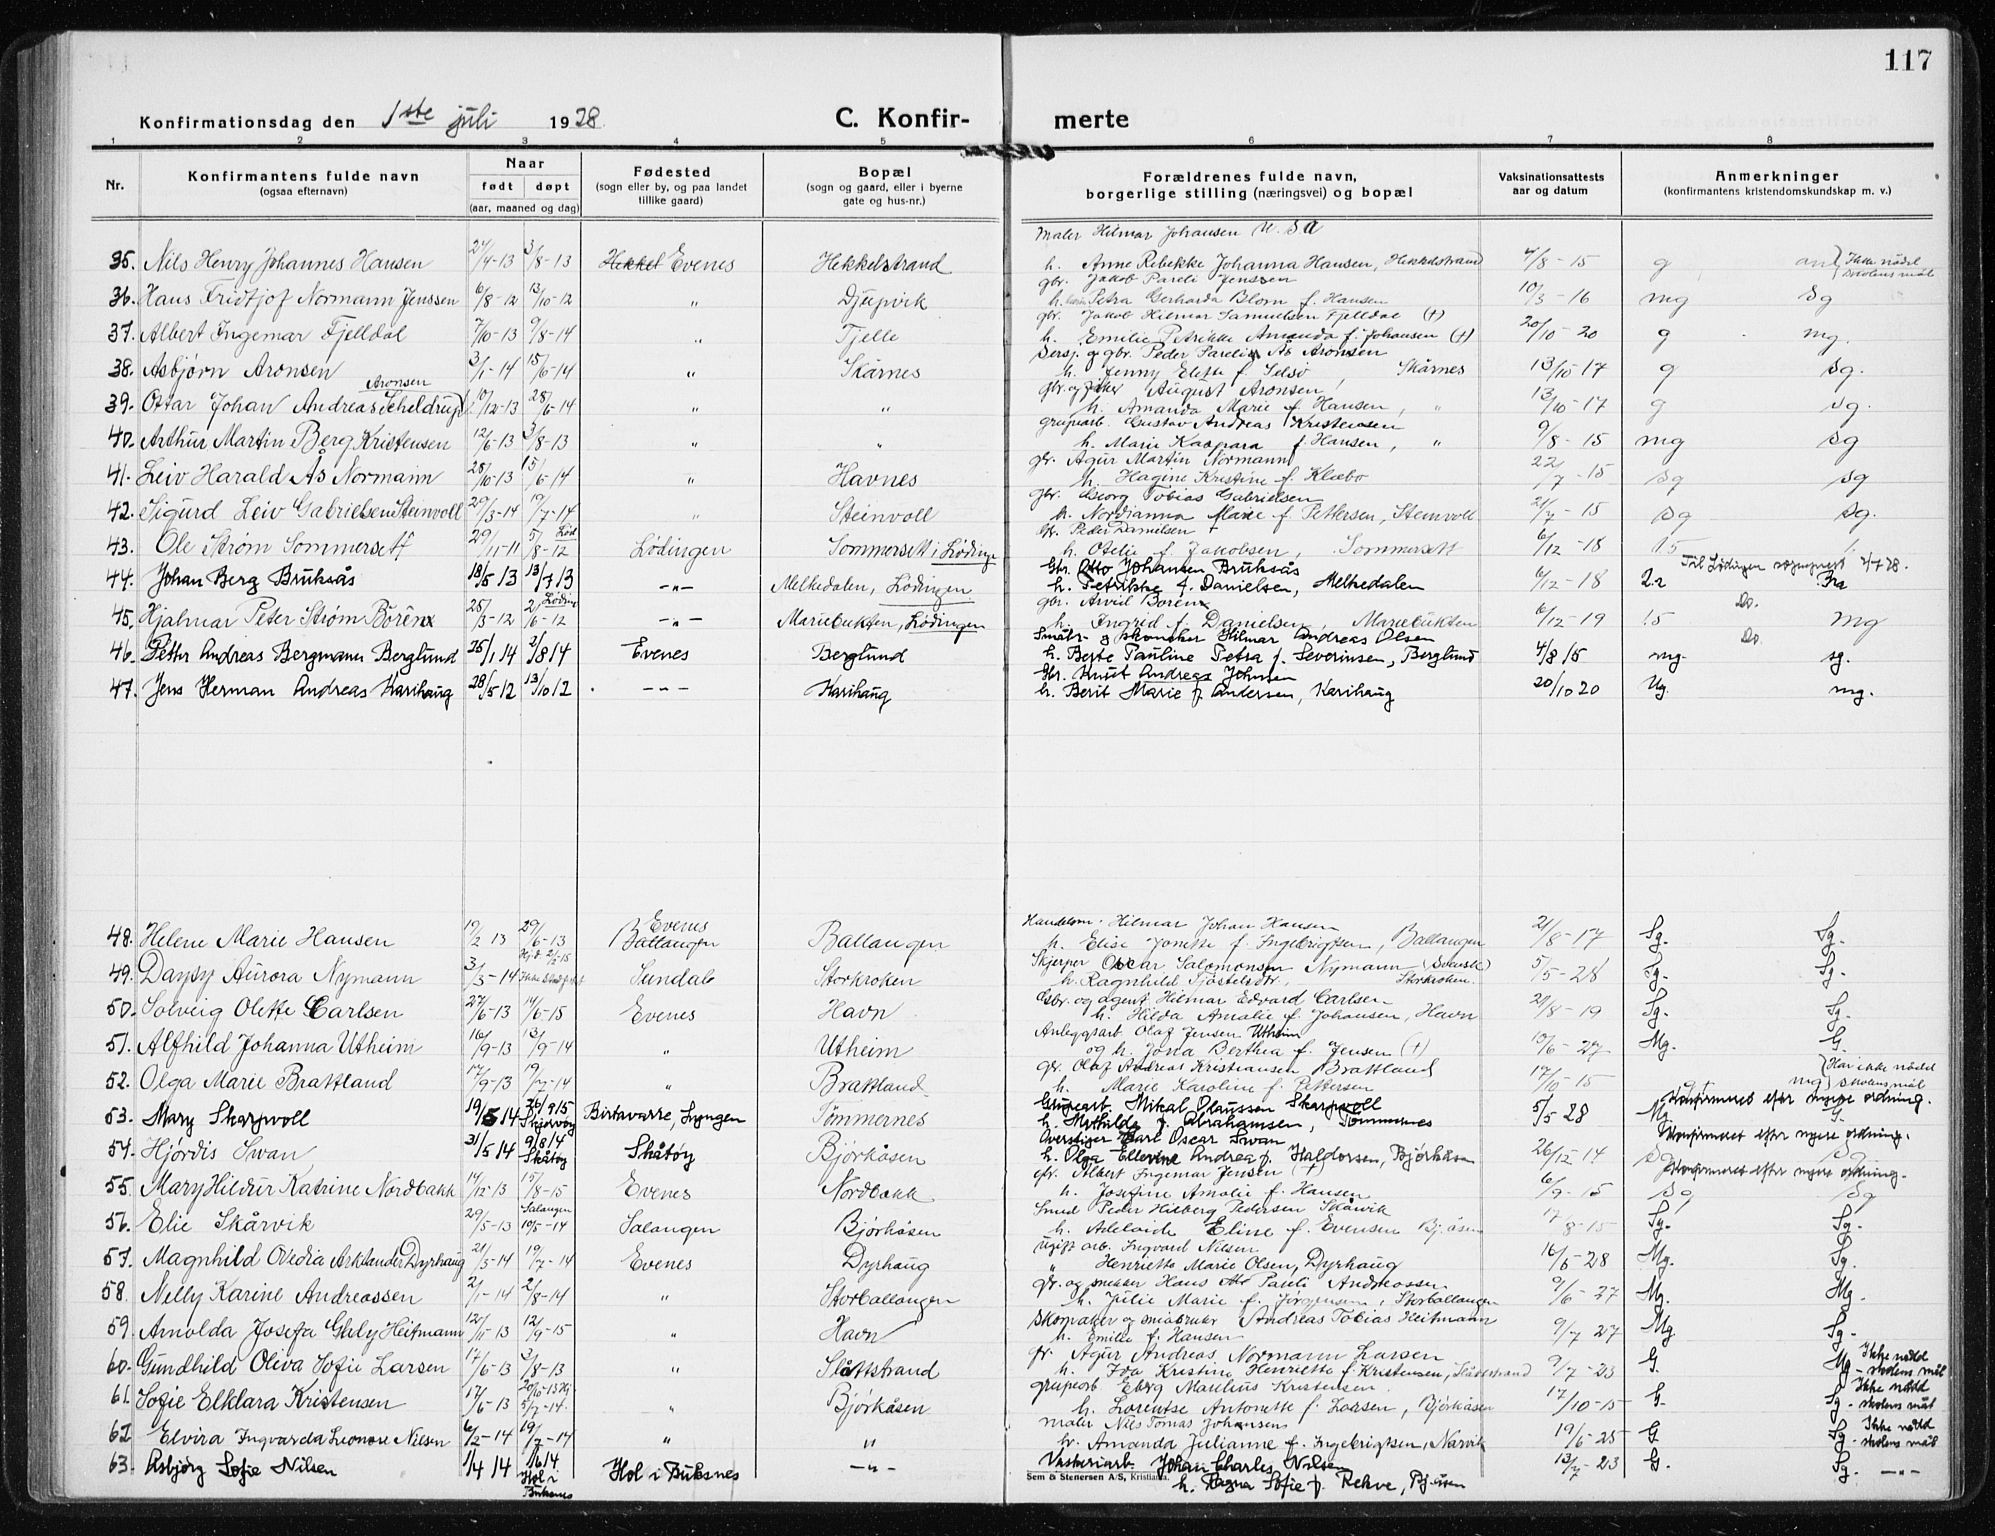 117
Konfirmationsdag den 1ste juli 1928
C. Konfir- merte
1 2 3 4 5 6 7 8
Nr. Konfirmantens fulde navn (ogsaa efternavn) Naar født døpt (aar, maaned og dag) Fødested (sogn eller by, og paa landet tillike gaard) Bopæl (sogn og gaard, eller i byerne gate og hus-nr.) Forældrenes fulde navn, borgerlige stilling (næringsvei) og bopæl Vaksinationsattests aar og datum Anmerkninger (konfirmantens kristendomskundskap m. v.)
Maler Hilmar Johansen U.S.A
35. Nils Henry Johannes Hansen 24/4-13 3/8-13 Hekkel Evenes Hekkelstrand h. Anne Rebekke Johanna Hansen, Hekkelstrand 4/8-15 g Ikke nådd skolens mål
gbr. Jakob Pareli Jenssen
36. Hans Fridtjof Normann Jenssen 6/8-12 13/10-12 " Djupvik h. Petra Gerharda Blom f. Hansen 10/3-16 mg Sg
gbr. Jakob Hilmar Samuelsen Fjelldal (+)
37. Albert Ingemar Fjelldal 7/10-13 9/8-14 " Tjelle h. Emilie Petrikke Amanda f. Johansen (+) 20/10-20 g mg.
Dersj. og gbr. Peder Parelius Ås Aronsen
38. Asbjørn Aronsen 3/1-14 15/6-14 " Skårnes h. Jenny Elette f. Selsø Skårnes 13/10 17 g sg.
gbr. og fisker August Aronsen
39. Ottar Johan Andreas Scheldrup Aronsen 10/12-13 28/6-14 " " h. Amanda Marie f. Hansen, " 13/10-17 g sg.
grubearb. Gustav Andreas Kristensen
40. Arthur Martin Berg Kristensen 12/6-13 3/8-13 " " h. Marie Kaspara f. Hansen, " 9/8-15 mg sg
gbr. Agur Martin Normann
41. Leiv Harald Ås Normann 28/10-13 15/6-14 " Havnes h. Hagine Kristine f. Klæbo 22/7-15 sg sg
gbr. Georg Tobias Gabrielsen
42. Sigurd Leiv Gabrielsen Steinvoll 29/3-14 19/7-14 " Steinvoll h. Nordianna Marie f. Pettersen, Steinvoll 21/7-15 sg sg.
gbr. Peder Danielsen +
43. Ole Strøm Sommersett 29/11-11 5/8-12 Løding Lødingen Sommersett i Lødinge h. Otelie f. Jakobsen, Sommersett 6/12-18 1.5
Gbr. Otto Johansen Bruksås Til Lødingen sogneprest 4/7 28.
44. Johan Berg Bruksås 18/5 13 13/7 13 -"- Melkedalen, Lødingen h. Petrikke f. Danielsen, Melkedalen 6/12-18 2.2
gbr. Arvid Boren Do.
45. Hjalmar Peter Strøm Børen 25/3-12 2/6-12 Løding -"- Mariebukten, Lødingen h. Ingrid f. Danielsen, Mariebukten 6/12-19 1.5 mg
Småbr. og skomaker Hilmar Andreas Olsen Do
46. Petter Andreas Bergmann Berglund 25/1 14 2/8 14 Evenes Berglund h. Berte Pauline Petra f. Severinsen, Berglund 4/8 15 mg. sg.
Gbr. Knut Andreas Johnsen
47. Jens Herman Andreas Karihaug 28/5 12 13/10 12 -"- Karihaug h. Berit Marie f. Andersen, Karihaug 20/10 20 Ug. mg.
Handelsm. Hilmar Johan Hansen
48. Helene Marie Hansen 19/2 13 29/6-13 Evenes Ballangen Ballangen h. Elise Jonette f. Ingebrigtsen, Ballangen 21/8-17 Sg. Sg.
Skjerper Oscar Salomonsen Nymann (Svensk)
49. Daysy Aurora Nymann 3/3-14 Hj.d. 2/2-15 Sundals Storkroken h. Ragnhild Tjostelsdtr., Storkroken 5/5-28 Tg. Sg.
Gbr. og agent Hilmar Edvard Carlsen
50. Solveig Olette Carlsen 27/6-13 14/6-15 Evenes Havn h. Hilda Amalie f. Johansen, Havn 21/8-19 Sg. Sg.
Anleggsarb. Olaf Jensen Utheim
51. Alfhild Johanna Utheim 16/9-13 13/9-14 " Utheim og h. Jona Berthea f. Jensen (+) 19/6-27 Mg. G.
gbr. Olaf Andreas Kristiansen Brattland
52. Olga Marie Brattland 17/9-13 19/7-14 " Brattland h. Marie Karoline f. Pettersen 17/10-15 g mg Har ikke nådd skolens mål
Grubearb. Mikal Olaussen Skarpvoll Konfirmeret efter nyere ordning.
53. Mary Skarpvoll 19/5 14 26/9 15 Skjervøy Birtavarre, Lyngen Tømmernes h. Mathilde f. Abrahamsen, Tømmernes 5/5 28 Mg G.
Overstiger Carl Oscar Swan Konfirmeret efter nyere ordning.
54. Hjørdis Swan 31/5 14 9/8 14 Skåtøy Skåtøy Bjørkåsen h. Olga Ellevine Andrea f. Haldorsen, Bjørkåsen 26/12 14 sg sg
gbr. Albert Ingemar Jensen (+) Konfirmeret efter nyere ordning.
55. Mary Hildur Katrine Nordbakk 14/12 13 15/8-15 Evenes Nordbakk h. Josefine Amalie f. Hansen 6/9-15 Sg Sg
Smed Peder Hilberg Pedersen Skårvik
56. Elie Skårvik 29/5-13 Salangen 10/5-14 Salangen Bjørkåsen h. Adelaide Eline f. Evensen Bj.åsen 17/8-15 Sg. Sg.
ugift arb. Ingvard Nilsen
57. Magnhild Ovedia Arklander Dyrhaug 21/3-14 19/7-14 Evenes Dyrhaug " Henriette Marie Olsen, Dyrhaug 16/6-28 Mg. Sg.
gbr. og snekker Hans Pareli Andreassen
58. Nelly Karine Andreassen 2/1-14 2/8-14 " Storballangen h. Julie Marie f. Jørgensen, Storballangen 9/6-27 Mg. Mg.
Skomaker og småbruker Andreas Tobias Heitmann
59. Arnolda Josefa Gkely Heitmann 12/11-13 12/9-15 " Havn h. Emilie f. Hansen 9/7 27 Mg Sg.
gbr. Agur Andreas Normann Larsen
60. Gundhild Oliva Sofie Larsen 17/6-13 3/8-13 " Slåttstrand h. Ida Kristine Henriette f. Kristensen, Slåttstrand 9/7-23 G. Mg Ikke nådd skolens mål
grubearb Eberg Maulius Kristensen
61. Sofie Elklara Kristensen 17/6-13 20/6-13 Hj. 5/7-14 " Bjørkåsen h. Lorentse Antonette f. Larsen, Bjørkåsen 17/10-15 G Sg Ikke nådd skolens mål
maler Nils Tomas Johansen
62 Elvira Ingvarda Leonore Nilsen 6/2-14 19/7-14 " " h. Amanda Julianne f. Ingebrigtsen, Narvik 19/6-25 G Sg Ikke nådd skolens mål
Vaskeriarb. Johan Charles Nilsen
63. Asbjørg Sofie Nilsen 1/4 14 1/6 14 Hol i Buksnes Hol i Buksnes -"- h. Ragna Sofie f. Rekve, Bj.åsen 13/7-23 G. Sg. -"-
Sem & Stenersen A/S, Kristiania.